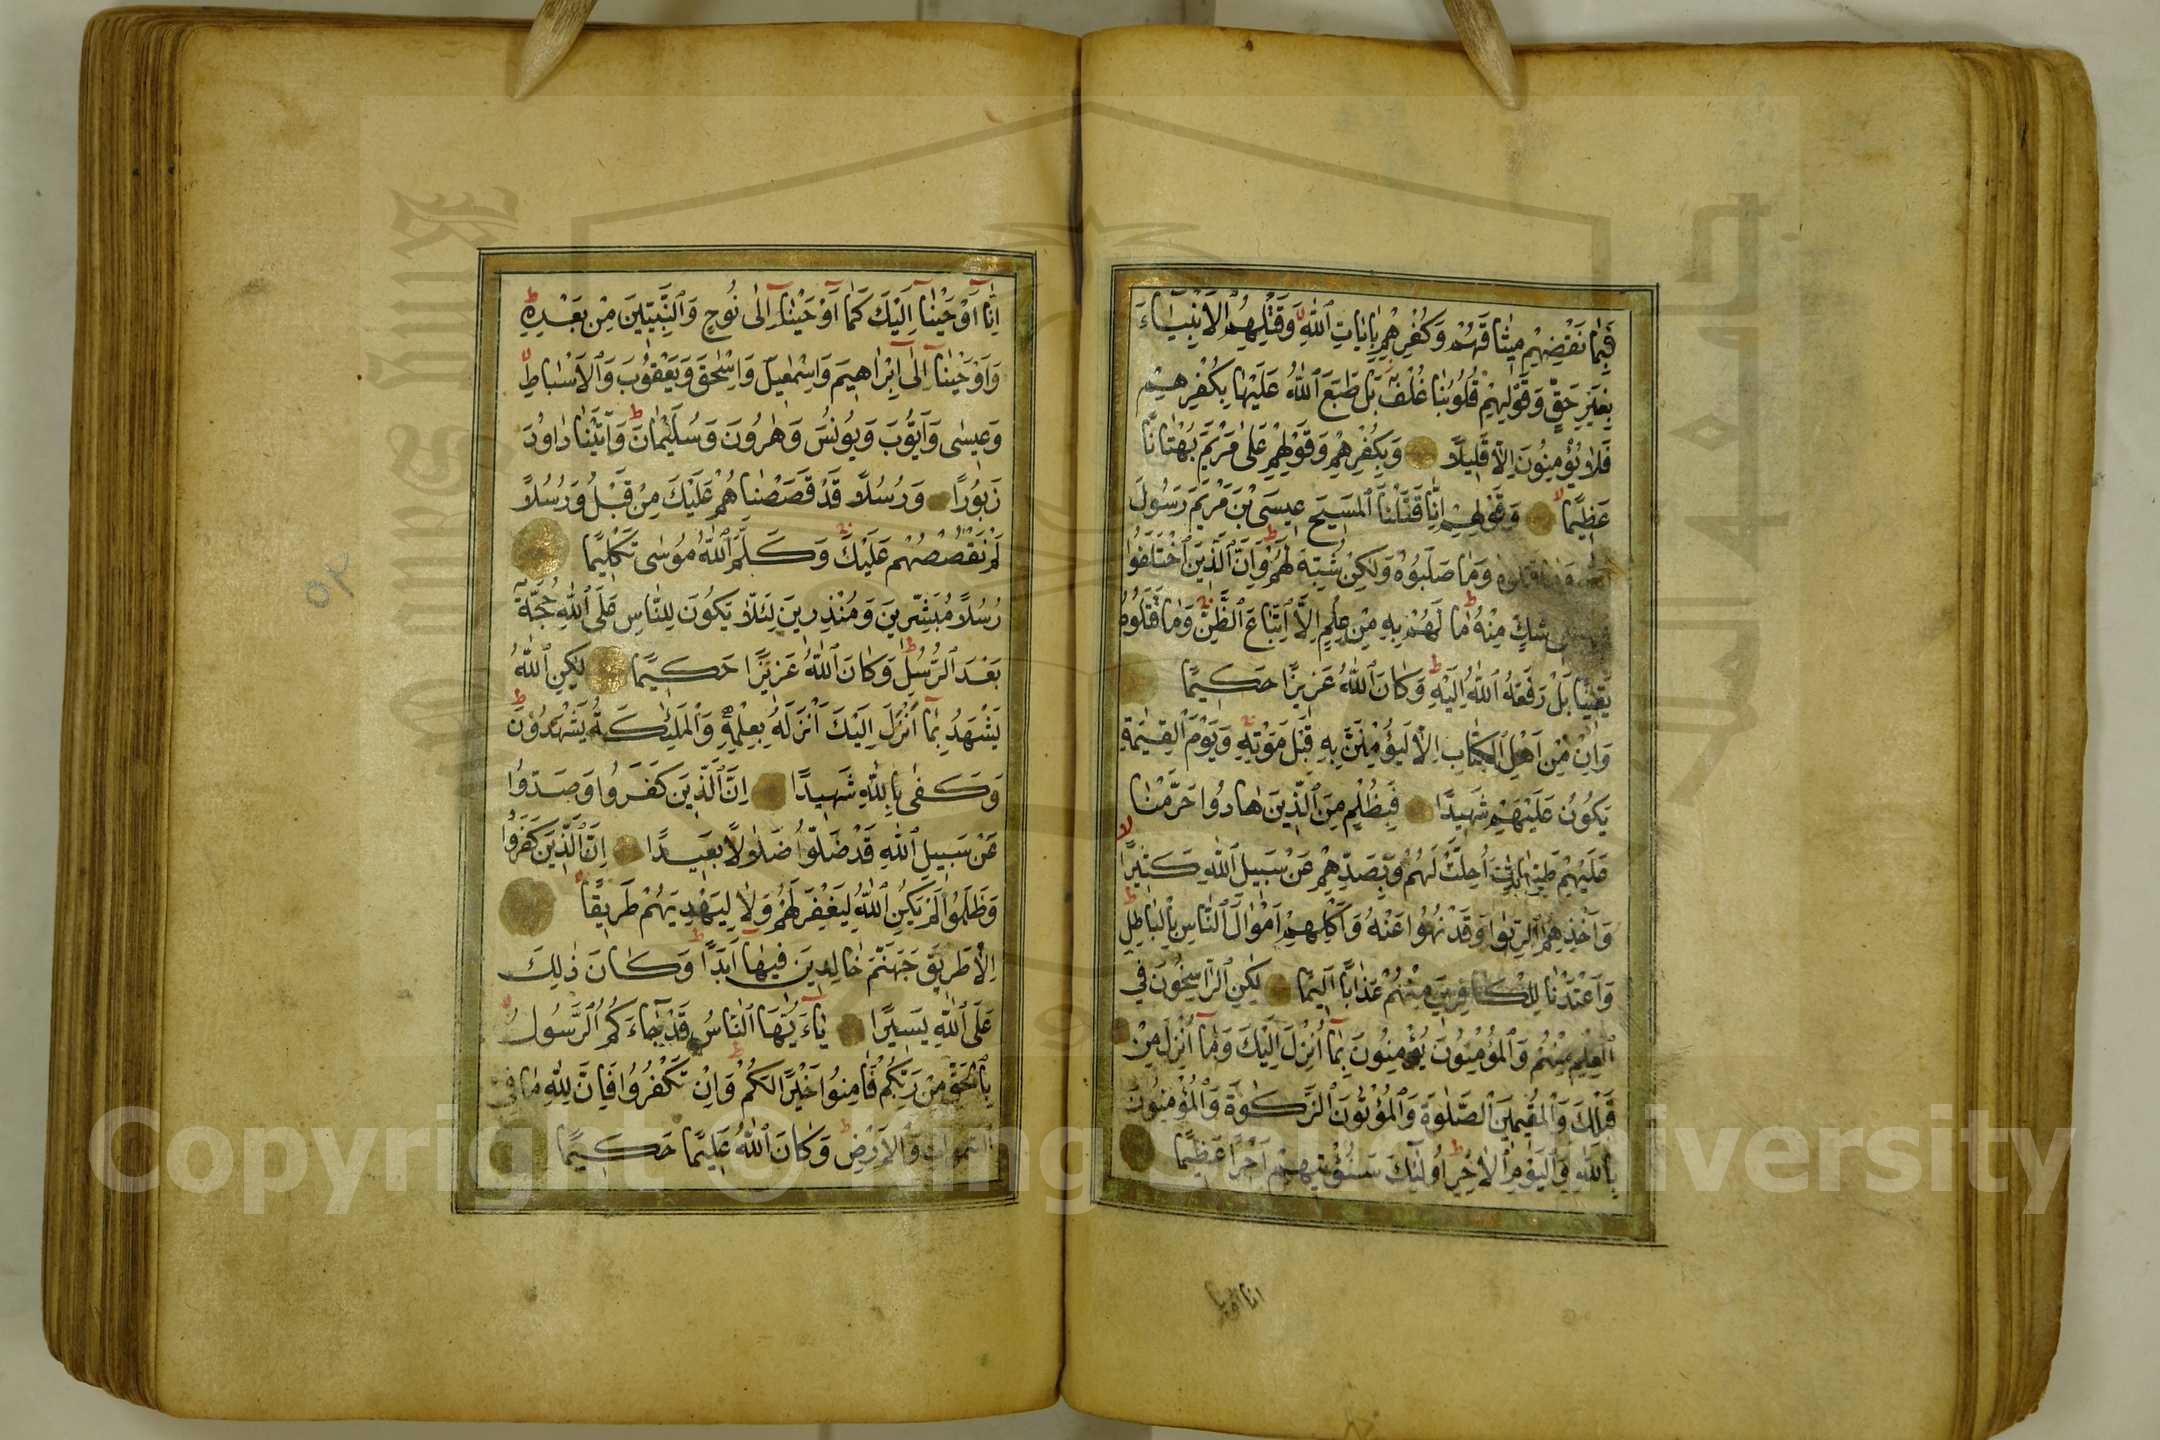 فَبِمَا نَقْضِهِمْ مِيثَاقَهُمْ وَكُفْرِهِمْ بِاٰيَاتِ اللّٰهِ وَقَتْلِهِمُ الْاَنْبِيَاءَ
بِغَيْرِ حَقٍّ وَقَوْلِهِمْ قُلُوبُنَا غُلْفٌ بَلْ طَبَعَ اللّٰهُ عَلَيْهَا بِكُفْرِهِمْ
فَلَا يُؤْمِنُونَ اِلَّا قَلِيلًا وَبِكُفْرِهِمْ وَقَوْلِهِمْ عَلٰى مَرْيَمَ بُهْتَانًا
عَظِيمًا وَقَوْلِهِمْ اِنَّا قَتَلْنَا الْمَسِيحَ عِيسَى بْنَ مَرْيَمَ رَسُولَ
اللّٰهِ وَمَا قَتَلُوهُ وَمَا صَلَبُوهُ وَلٰكِنْ شُبِّهَ لَهُمْ وَاِنَّ الَّذِينَ اخْتَلَفُوا
شَكٍّ مِنْهُ مَا لَهُمْ بِهِ مِنْ عِلْمٍ اِلَّا اتِّبَاعَ الظَّنِّ وَمَا قَتَلُوهُ
يَقِينًا بَلْ رَفَعَهُ اللّٰهُ اِلَيْهِ وَكَانَ اللّٰهُ عَزِيزًا حَكِيمًا
وَاِنْ مِنْ اَهْلِ الْكِتَابِ اِلَّا لَيُؤْمِنَنَّ بِهِ قَبْلَ مَوْتِهِ وَيَوْمَ الْقِيٰمَةِ
يَكُونُ عَلَيْهِمْ شَهِيدًا فَبِظُلْمٍ مِنَ الَّذِينَ هَادُوا حَرَّمْنَا
عَلَيْهِمْ طَيِّبَاتٍ اُحِلَّتْ لَهُمْ وَبِصَدِّهِمْ عَنْ سَبِيلِ اللّٰهِ كَثِيرًا
وَاَخْذِهِمُ الرِّبٰوا وَقَدْ نُهُوا عَنْهُ وَاَكْلِهِمْ اَمْوَالَ النَّاسِ بِالْبَاطِلِ
وَاَعْتَدْنَا لِلْكَافِرِينَ مِنْهُمْ عَذَابًا اَلِيمًا لٰكِنِ الرَّاسِخُونَ فِي
الْعِلْمِ مِنْهُمْ وَالْمُؤْمِنُونَ يُؤْمِنُونَ بِمَا اُنْزِلَ اِلَيْكَ وَمَا اُنْزِلَ مِنْ
قَبْلِكَ وَالْمُقِيمِينَ الصَّلٰوةَ وَالْمُؤْتُونَ الزَّكٰوةَ وَالْمُؤْمِنُونَ
بِاللّٰهِ وَالْيَوْمِ الْاٰخِرِ اُولٰئِكَ سَنُؤْتِيهِمْ اَجْرًا عَظِيمًا
انا اوحينا
اِنَّا اَوْحَيْنَا اِلَيْكَ كَمَا اَوْحَيْنَا اِلٰى نُوحٍ وَالنَّبِيِّينَ مِنْ بَعْدِهِ
وَاَوْحَيْنَا اِلٰى اِبْرَاهِيمَ وَاِسْمٰعِيلَ وَاِسْحٰقَ وَيَعْقُوبَ وَالْاَسْبَاطِ
وَعِيسٰى وَاَيُّوبَ وَيُونُسَ وَهٰرُونَ وَسُلَيْمٰانَ وَاٰتَيْنَا دَاوُدَ
زَبُورًا وَرُسُلًا قَدْ قَصَصْنَاهُمْ عَلَيْكَ مِنْ قَبْلُ وَرُسُلًا
لَمْ نَقْصُصْهُمْ عَلَيْكَ وَكَلَّمَ اللّٰهُ مُوسٰى تَكْلِيمًا
رُسُلًا مُبَشِّرِينَ وَمُنْذِرِينَ لِئَلَّا يَكُونَ لِلنَّاسِ عَلَى اللّٰهِ حُجَّةٌ
بَعْدَ الرُّسُلِ وَكَانَ اللّٰهُ عَزِيزًا حَكِيمًا لٰكِنِ اللّٰهُ
يَشْهَدُ بِمَا اَنْزَلَ اِلَيْكَ اَنْزَلَهُ بِعِلْمِهِ وَالْمَلٰئِكَةُ يَشْهَدُونَ
وَكَفٰى بِاللّٰهِ شَهِيدًا اِنَّ الَّذِينَ كَفَرُوا وَصَدُّوا
عَنْ سَبِيلِ اللّٰهِ قَدْ ضَلُّوا ضَلَالًا بَعِيدًا اِنَّ الَّذِينَ كَفَرُوا
وَظَلَمُوا لَمْ يَكُنِ اللّٰهُ لِيَغْفِرَ لَهُمْ وَلَا لِيَهْدِيَهُمْ طَرِيقًا
اِلَّا طَرِيقَ جَهَنَّمَ خَالِدِينَ فِيهَا اَبَدًا وَكَانَ ذٰلِكَ
عَلَى اللّٰهِ يَسِيرًا يَاءَيُّهَا النَّاسُ قَدْ جَاءَكُمُ الرَّسُولُ
بِالْحَقِّ مِنْ رَبِّكُمْ فَاٰمِنُوا خَيْرًا لَكُمْ وَاِنْ تَكْفُرُوا فَاِنَّ لِلّٰهِ مَا فِي
السَّمٰوَاتِ وَالْاَرْضِ وَكَانَ اللّٰهُ عَلِيمًا حَكِيمًا
٥٢
Copyright © King Saud University